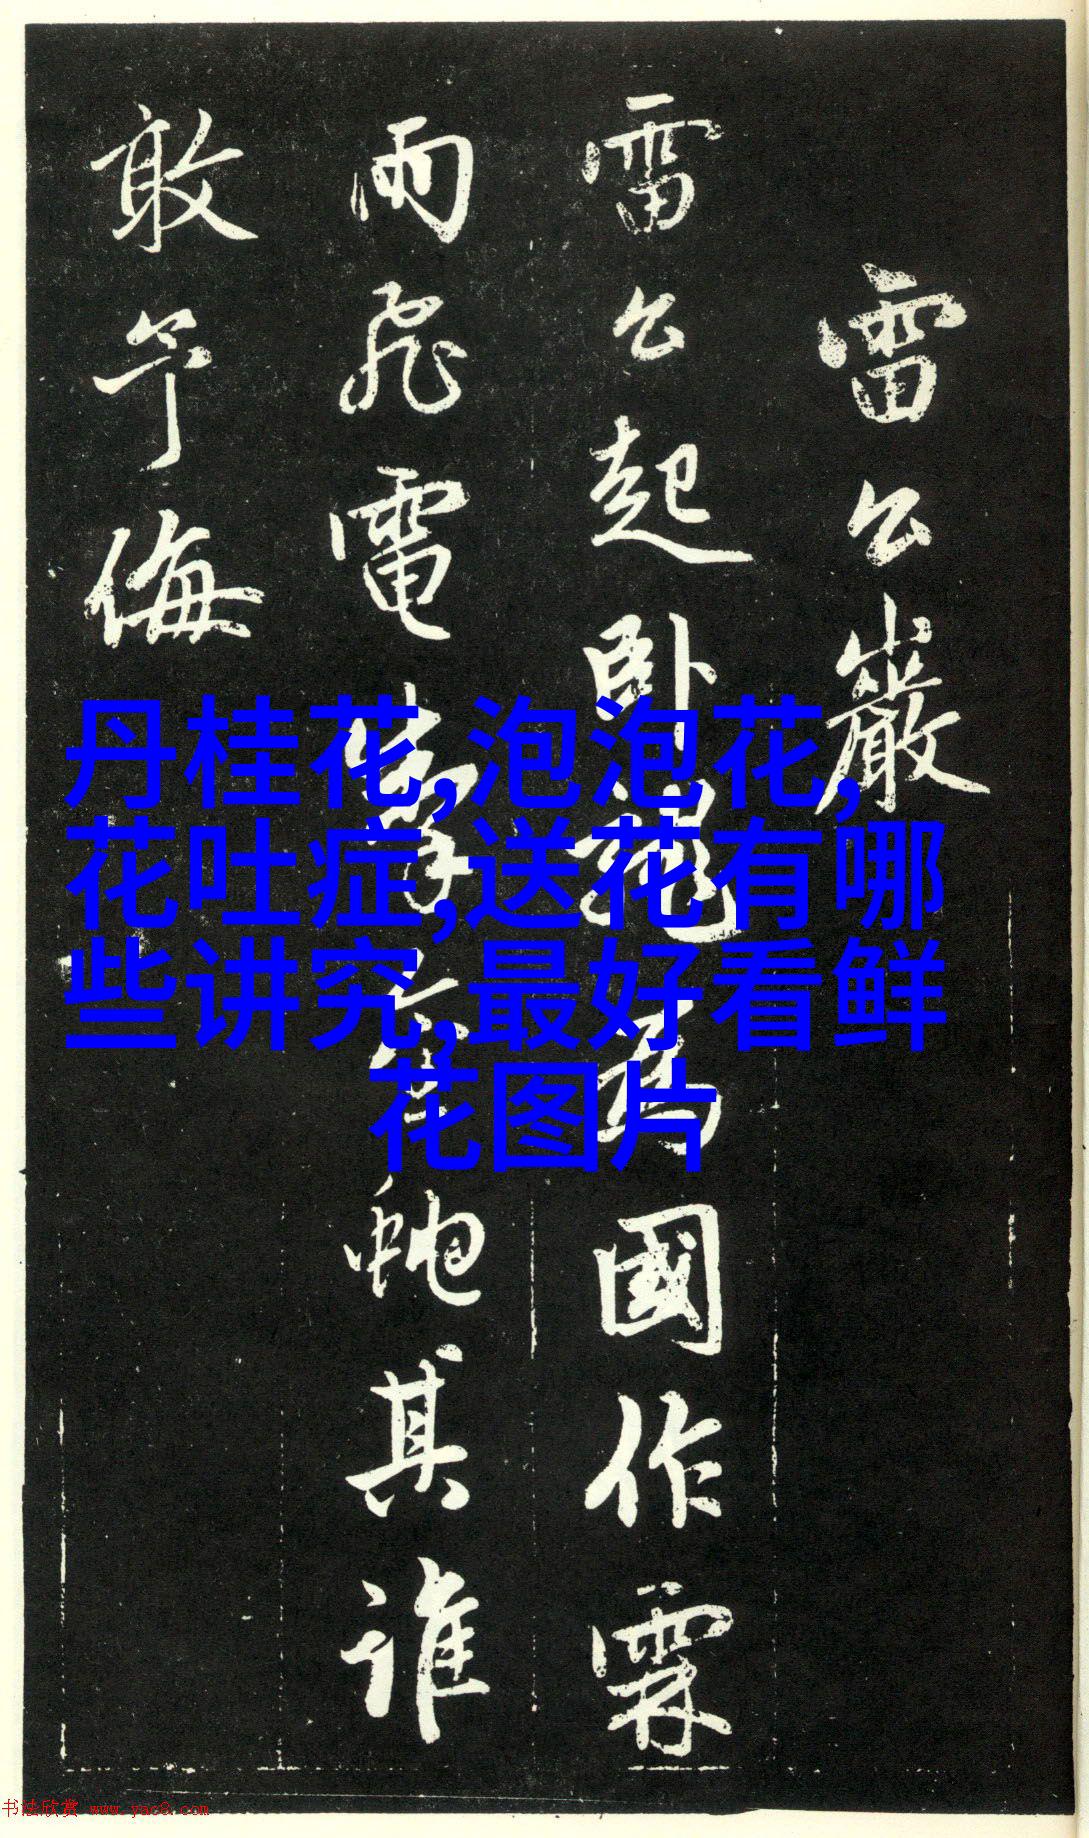 雷公巖
雷公起卧龍為國作霖
雨飛電掣金蛇其誰
敢予侮
丹桂花,泡泡花,
花吐症,送花有哪
些讲究,最好看鲜
花图片
书法欣赏 www.yac8.com